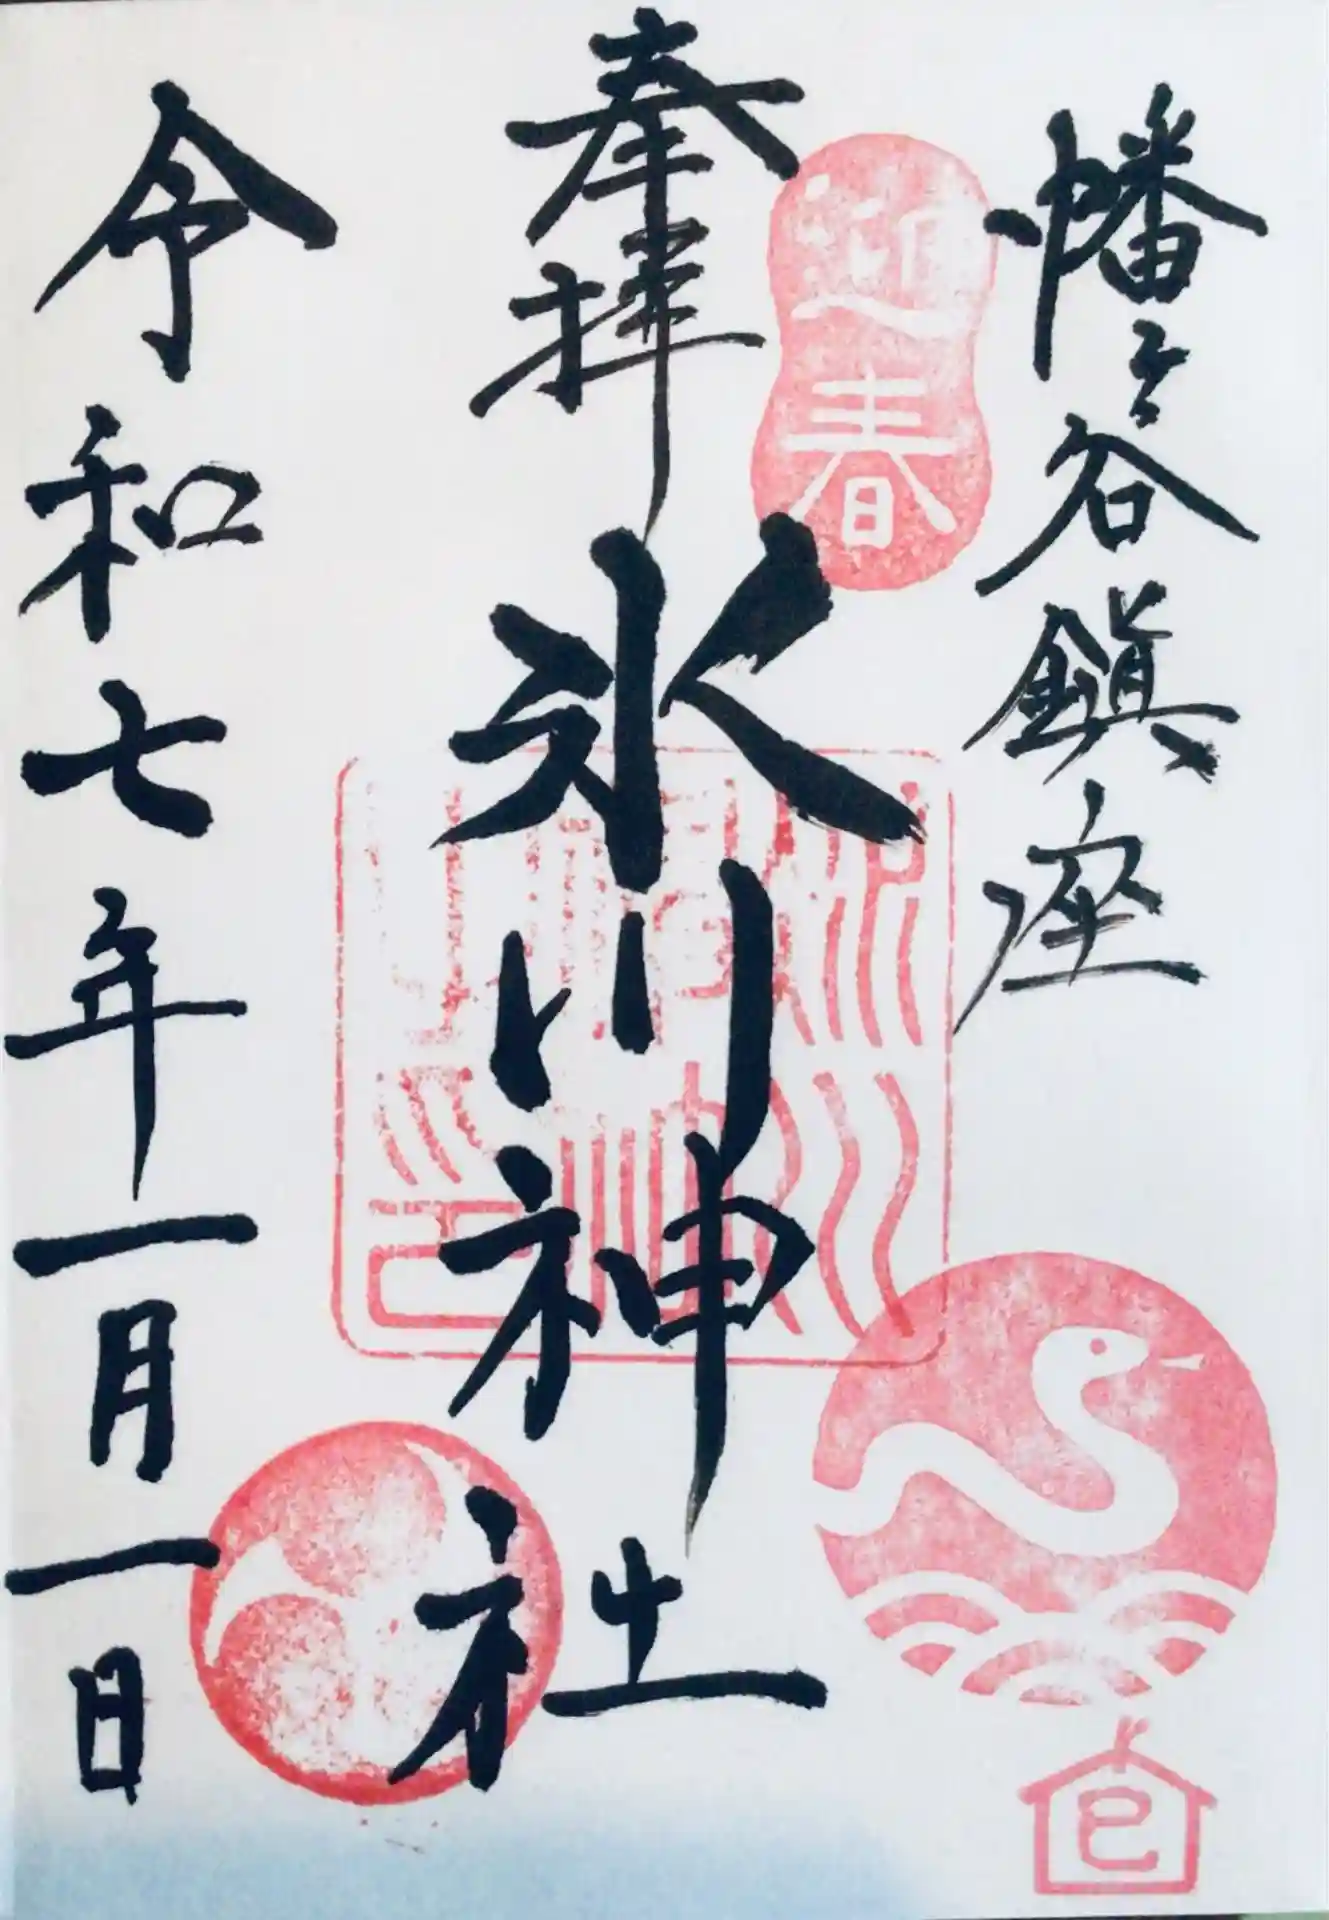 幡ヶ谷鎭座
迎春
奉拝
氷川神社
令和七年一月一日
巳